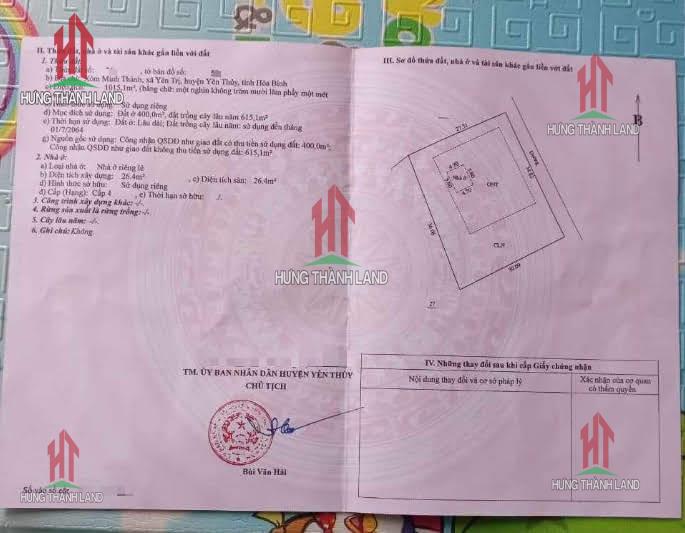 II. Thửa đất, nhà ở và tài sản khác gắn liền với đất
1. Thửa đất:
a) Thửa đất số: , tờ bản đồ số:
b) Địa chỉ: Xóm Minh Thành, xã Yên Trị, huyện Yên Thủy, tỉnh Hòa Bình
1015,1m², (bằng chữ: một nghìn không trăm mười lăm phẩy một mét
Sử dụng riêng
đ) Mục đích sử dụng: Đất ở 400,0m²; đất trồng cây lâu năm 615,1m²
e) Thời hạn sử dụng: Đất ở: Lâu dài; Đất trồng cây lâu năm: sử dụng đến tháng
01/7/2064
g) Nguồn gốc sử dụng: Công nhận QSDĐ như giao đất có thu tiền sử dụng đất: 400,0m²;
Công nhận QSDĐ như giao đất không thu tiền sử dụng đất: 615,1m²
2. Nhà ở:
a) Loại nhà ở: Nhà ở riêng lẻ
b) Diện tích xây dựng: 26.4m² c) Diện tích sàn: 26.4m²
d) Hình thức sở hữu: Sử dụng riêng
đ) Cấp (Hạng): Cấp 4 e) Thời hạn sở hữu: ./.
3. Công trình xây dựng khác: -/-
4. Rừng sản xuất là rừng trồng: -/-
5. Cây lâu năm: -/-
6. Ghi chú: Không
TM. ỦY BAN NHÂN DÂN HUYỆN YÊN THỦY
CHỦ TỊCH
Bùi Văn Hải
Số vào sổ cấp
III. Sơ đồ thửa đất, nhà ở và tài sản khác gắn liền với đất
B
27.51
ONT
CLN
30.09
27
IV. Những thay đổi sau khi cấp Giấy chứng nhận
Nội dung thay đổi và cơ sở pháp lý
Xác nhận của cơ quan
có thẩm quyền
HT
HƯNG THÀNH LAND
HT
HƯNG THÀNH LAND
HT
HƯNG THÀNH LAND
HT
HƯNG THÀNH LAND
HT
HƯNG THÀNH LAND